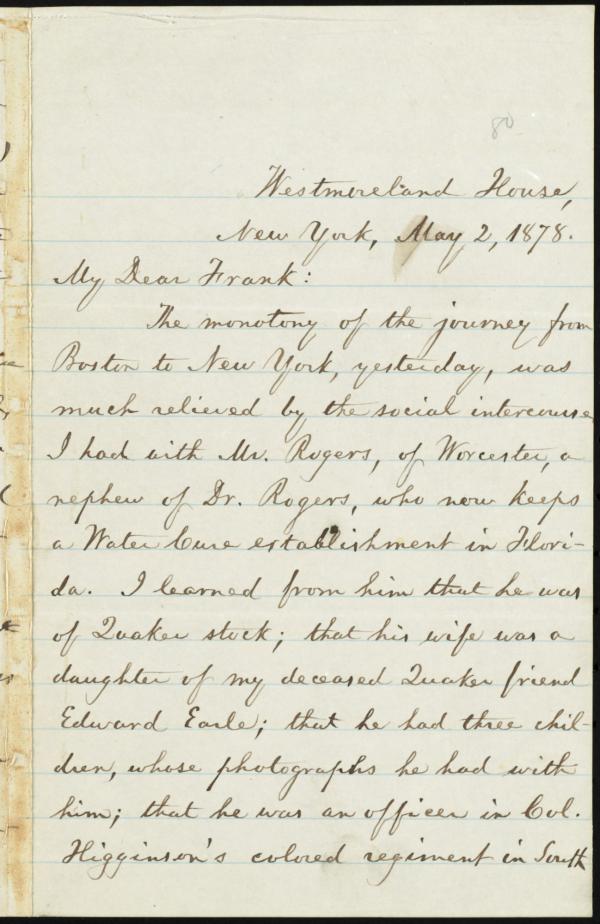 80
Westmoreland House,
New York, May 2, 1878.
My Dear Frank:
The monotony of the journey from
Boston to New York, yesterday, was
much relieved by the social intercourse
I had with Mr. Rogers, of Worcester, a
nephew of Dr. Rogers, who now keeps
a Water Cure establishment in Flori-
da. I learned from him that he was
of Quaker stock; that his wife was a
daughter of my deceased Quaker friend
Edward Earle; that he had three chil-
dren, whose photographs he had with
him; that he was an officer in Col.
Higginson's colored regiment in South